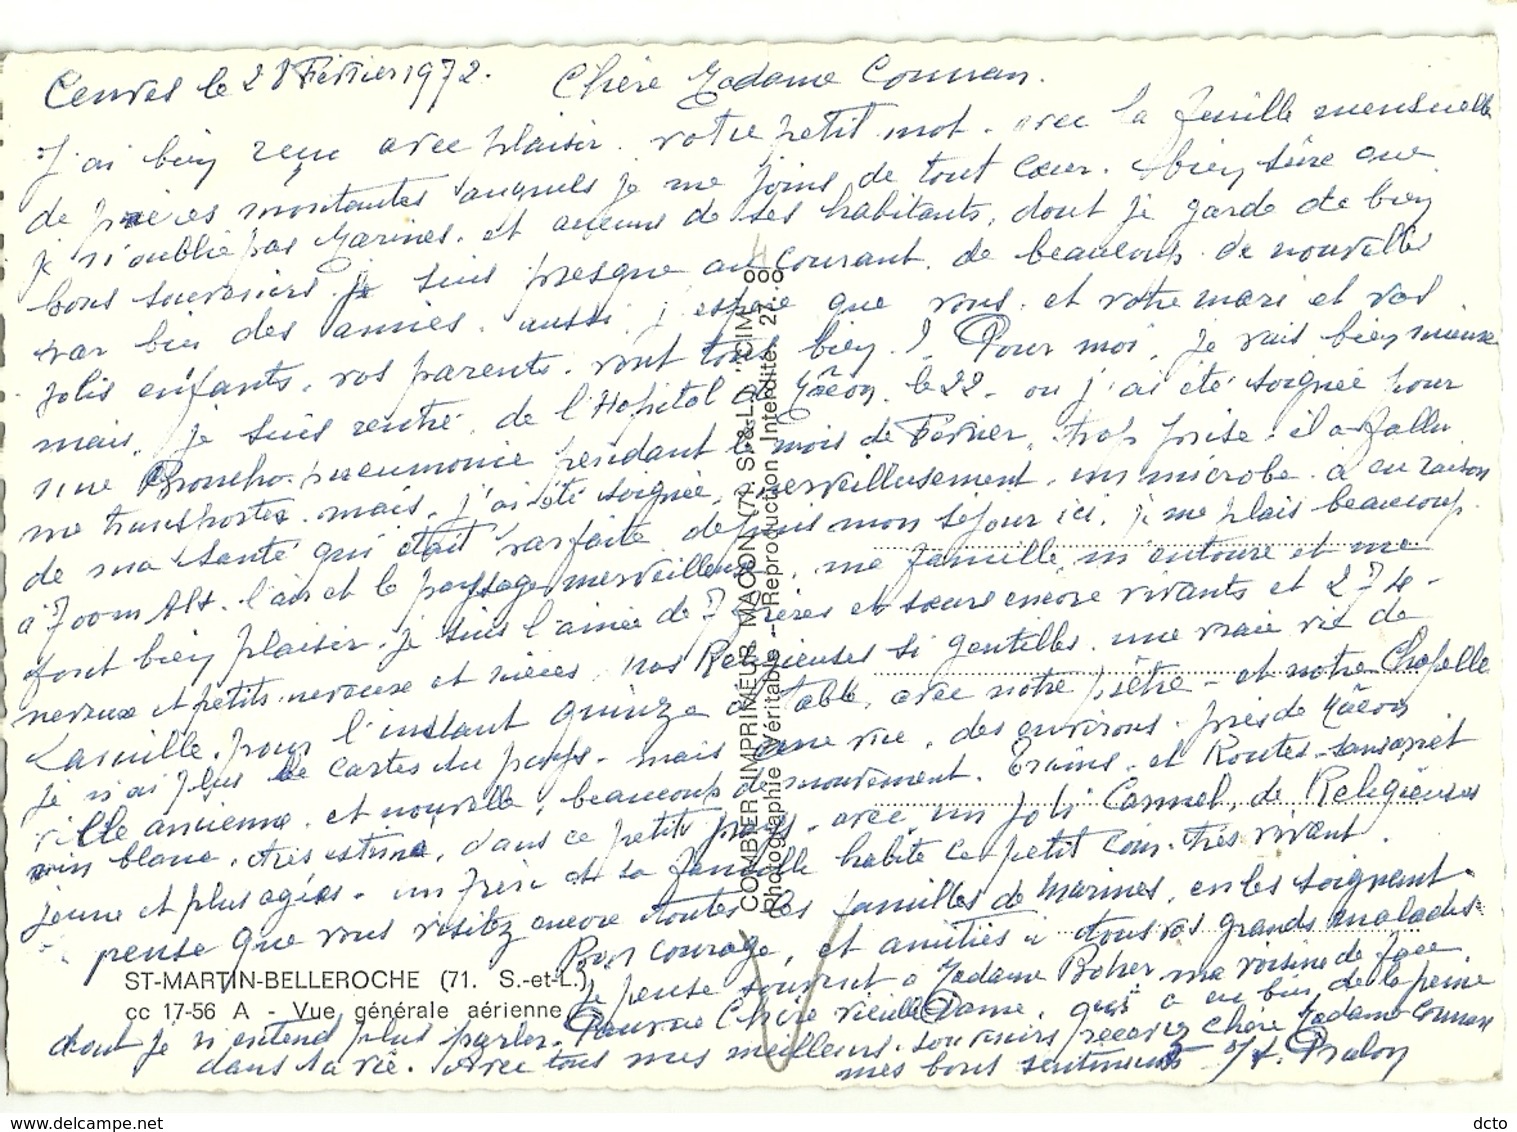 Cenves le 28 Février 1972. Chère Madame Connan.
J'ai bien reçu avec plaisir. votre petit mot. avec la feuille mensuelle
de prières montantes auquels je me joins de tout cœur. bien sûre que
je n'oublie pas Marines. et aucuns de ses habitants, dont je garde de bien
bons souvenirs. je suis presque au courant. de beaucoup de nouvelles
par bien des amies. aussi j'espère que vous. et votre mari et vos
jolis enfants. vos parents. vont tous bien.! Pour moi, je vais bien mieux
mais, je suis rentré. de l'Hopital de Mâcon. le 22. ou j'ai été soignée pour
une Broncho-pneumonie pendant le mois de Février. trop prise. il a fallu
me transporter. mais. j'ai été soignée, merveilleusement. un microbe. a eu raison
de ma santé qui était parfaite depuis mon séjour ici. je me plais beaucoup.
à 700m Alt. l'air et le paysage merveilleux, ma famille, m'entoure et me
font bien plaisir. je suis l'ainée de 7 frères et sœurs encore vivants et 274-
neveux et petits-neveux et nièces, nos Religieuses si gentilles. une vraie vie de
famille. pour l'instant quinze à table, avec notre prêtre - et notre Chapelle
je n'ai plus de cartes du pays. mais une vue, des environs. près de Mâcon
ville ancienne. et nouvelle, beaucoup de mouvement. Trains. et Routes. sans arrêt
vin blanc. très estimé, dans ce petit pays. avec un joli Carmel, de Religieuses
jeune et plus agées. un frère et sa famille habite ce petit coin. très vivant.
pense que vous visitez encore toutes les familles de Marines, en les soignant.
Bon courage, et amitiés à tous vos grands malades.
ST-MARTIN-BELLEROCHE (71. S.-et-L.)
cc 17-56 A - Vue générale aérienne
Je pense souvent à Madame ma voisine de face
Pauvre Chère vieille Dame, qui a eu bien de la peine
dont je n'entend plus parler.
dans sa vie. Avec tous mes meilleurs. souvenirs recevez Chère Madame Connan
mes bons sentiments
COMBIER IMPRIMEUR MACON (71. S.-&-L.) "CIM"
Photographie Véritable - Reproduction Interdite
www.delcampe.net
dcto